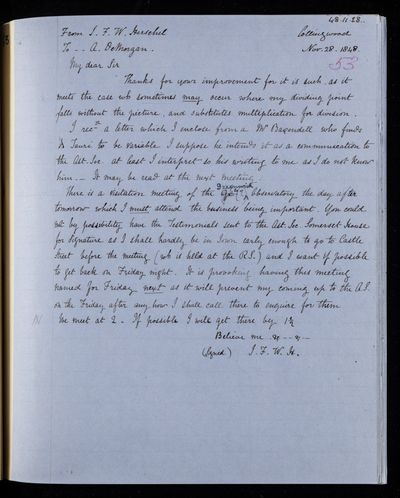 48.11.28.
From J. F. W. Herschel Collingwood
To -- A. DeMorgan. Nov. 28. 1848.
53
My dear Sir
Thanks for your improvement for it is such as it
meets the case wh sometimes may occur where my dividing point
falls without the picture, and substitutes multiplication for division.
I recd a letter which I inclose from a Mr Baxendell who finds
λ Tauri to be variable I suppose he intends it as a communication to
the Ast. Soc at least I interpret so his writing to me as I do not know
him. – It may be read at the next meeting.
There is a Visitation meeting of the Greenwich Observatory the day after
tomorrow which I must attend the business being important. You could
not by possibility have the Testimonials sent to the Ast. Soc. Somerset House
for signature as I shall hardly be in Town early enough to go to Castle
Street before the meeting (wh is held at the R.S.) and I want if possible
to get back on Friday night. It is provoking having this meeting
named for Friday next as it will prevent my coming up to the A.S.
on the Friday after any how I shall call there to enquire for them
We meet at 2. If possible I will get there by 1½
Believe me
(Signed) J. F. W. H.